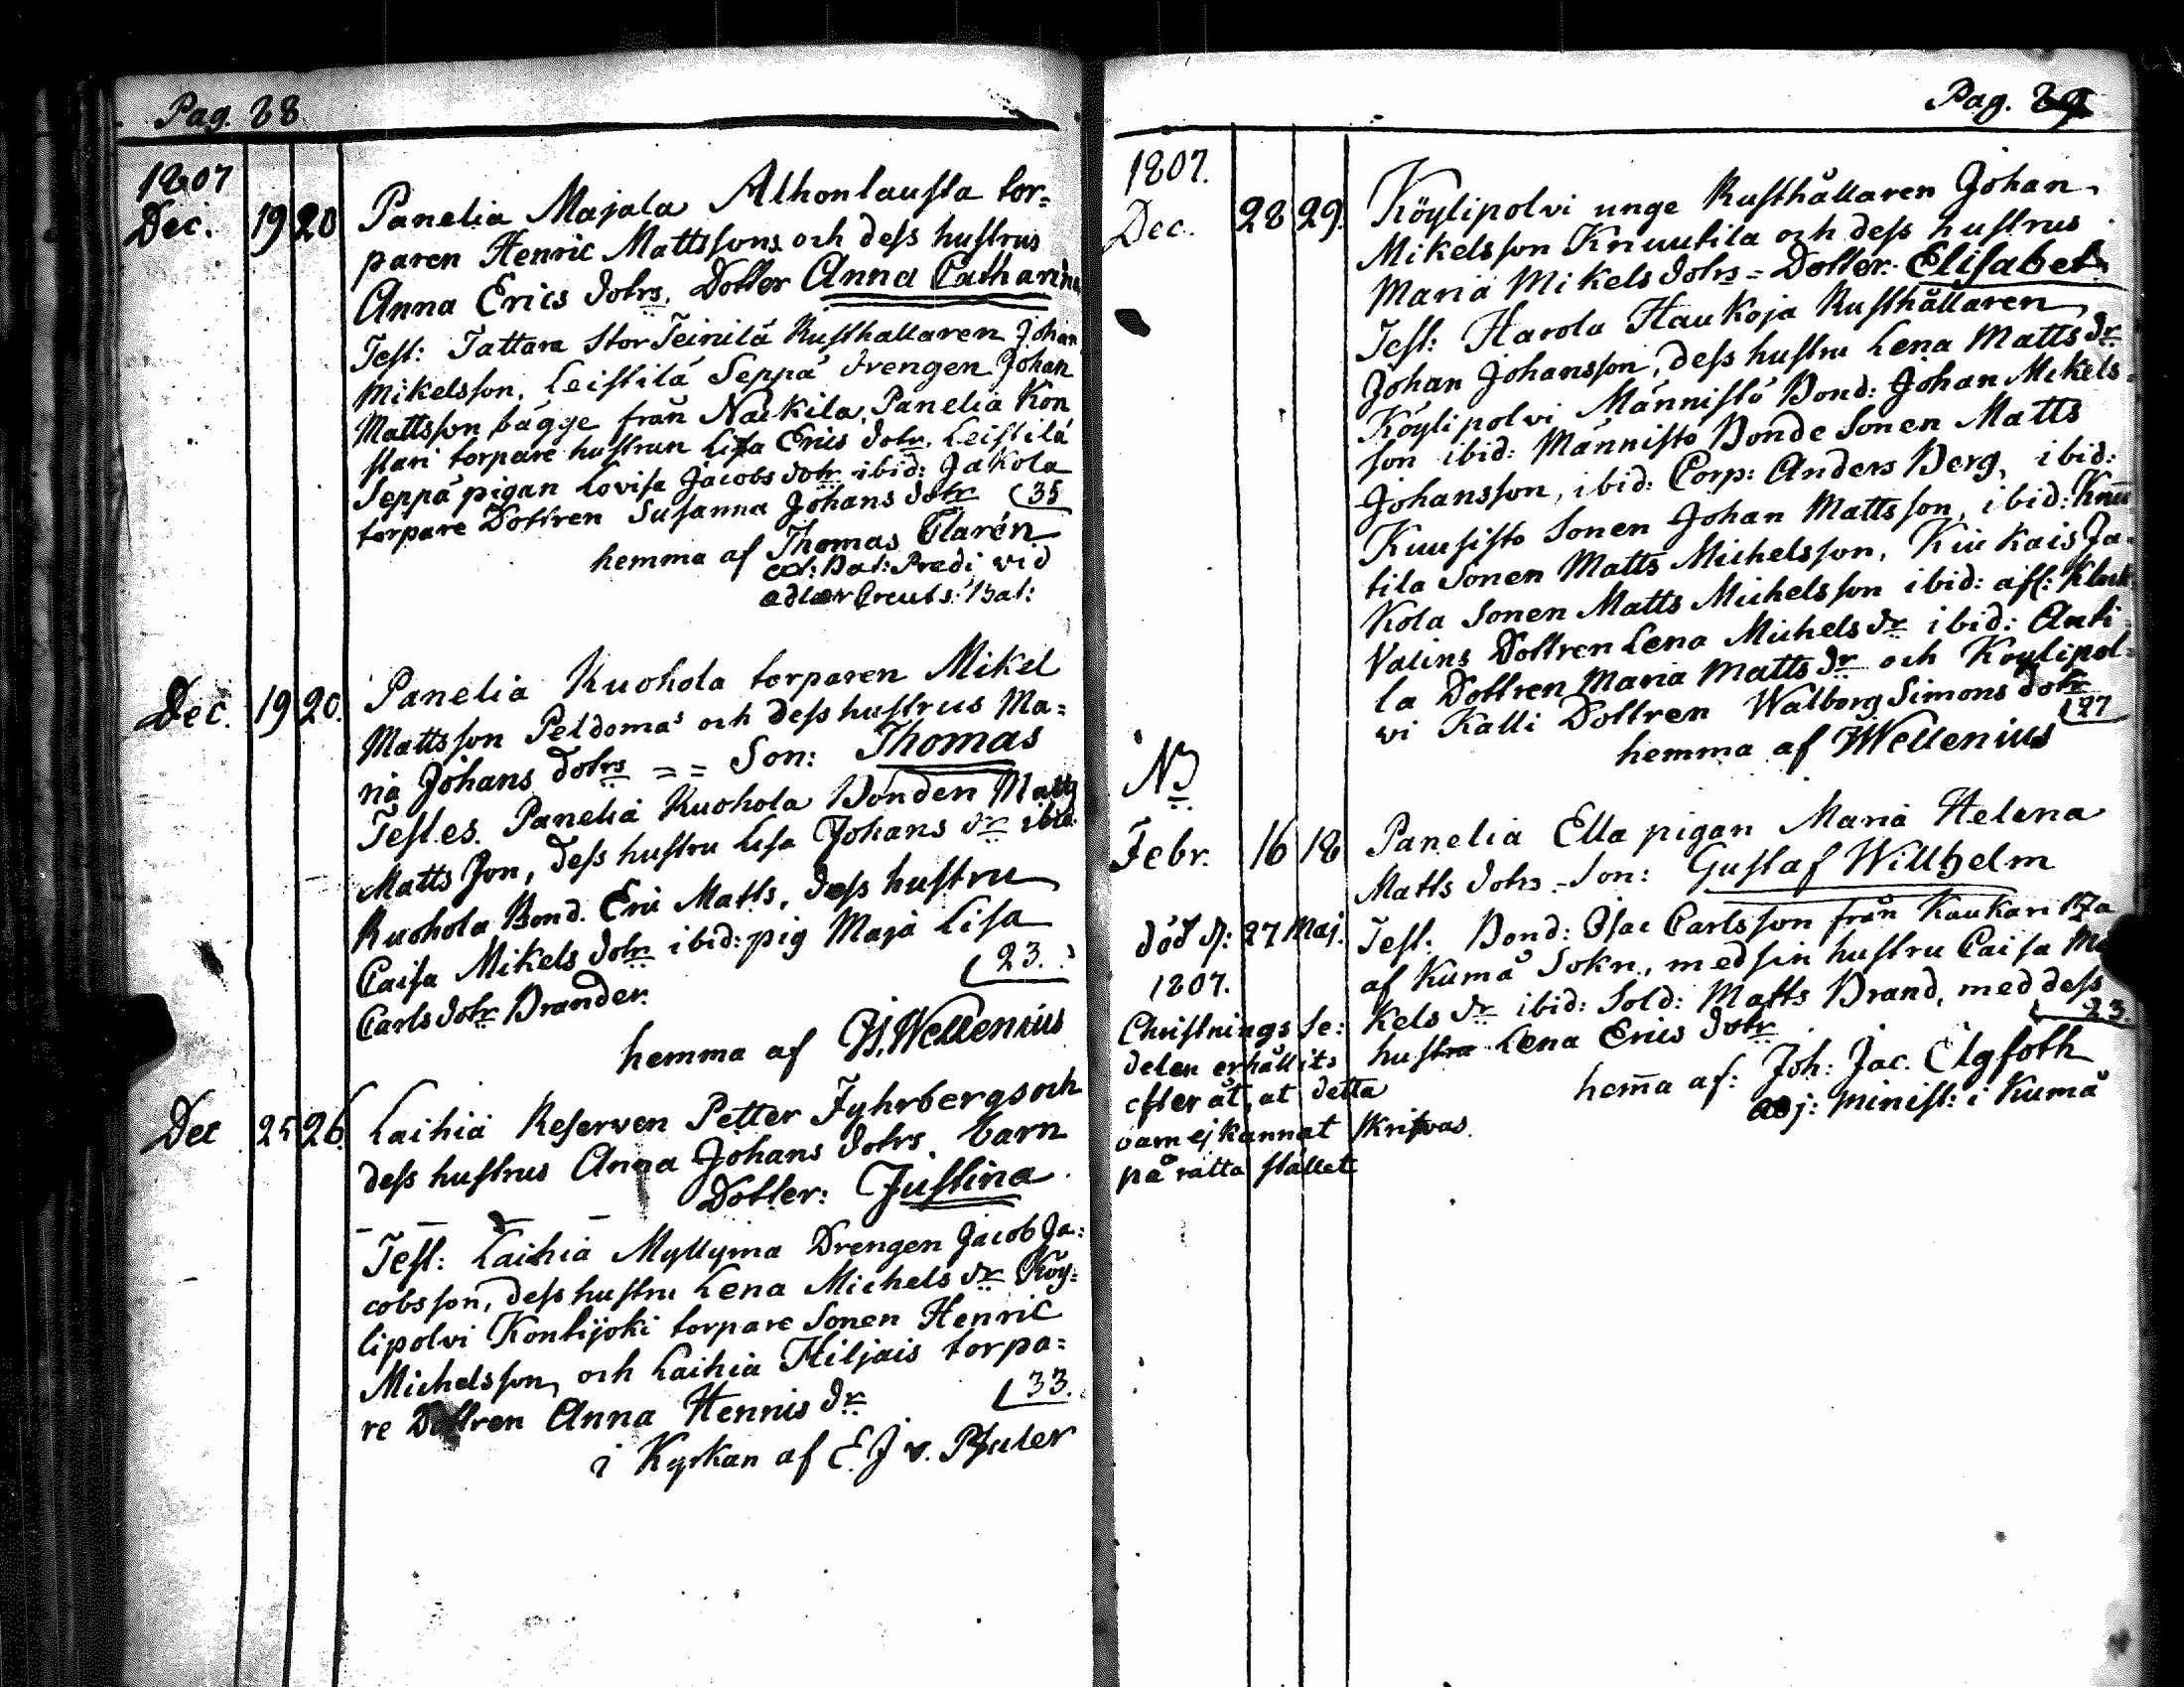 Pag. 88
1807
Dec. 19 20 Panelia Majala Alhonlausta tor=
paren Henric Mattssons och dess hustrus
Anna Erics dotrs. Dotter Anna Catharina
Test: Tattara Stor Teinilä Rusthållaren Johan
Mikelsson, Leistilä Seppä drengen Johan
Mattsson bägge från Nackila, Panelia Kon
stari torpare hustrun Lisa Erics dotr. Leistilä
Seppä pigan Lovisa Jacobs dotr ibid: Jakola
torpare Dottren Susanna Johans dotr (35
hemma af Thomas Clarén
Bat: Predi vid
adlercreuts: Bat:
Dec. 19 20. Panelia Kuohola torparen Mikel
Mattsson Peldomas och dess hustrus Ma=
ria Johans dotrs == Son: Thomas
Testes. Panelia Kuohola Bonden Matts
Matts son, dess hustru Lisa Johans dr ibid:
Kuohola Bond. Eric Matts, dess hustru
Caisa Mikels dotr ibid: pig Maja Lisa
Carls dotr Brander. (23.
hemma af J. Wellenius
Dec 25 26. Laihia Reserven Petter Fyhrbergs och
dess hustrus Anna Johans dotrs. barn
Dotter: Justina
Test: Laihia Myllymä Drengen Jacob Ja=
cobsson, dess hustru Lena Michels dr Köy=
lipolvi Kontijoki torpare Sonen Henric
Michelsson, och Laihia Hiljais torpa=
re Dottren Anna Henrics dr (33.
i Kyrkan af E. J v. Pfaler
Pag. 89
1807.
Dec. 28 29. Köylipolvi unge Rusthållaren Johan
Mikelsson Knuutila och dess hustrus
Maria Mikels dotrs = Dotter: Elisabet
Test: Harola Haukoja Rusthållaren
Johan Johansson, dess hustru Lena Matts dr
Köylipolvi Männistö Bond: Johan Mikels=
son ibid: Männistö Bonde Sonen Matts
Johansson, ibid: Corp: Anders Berg, ibid:
Kuusisto Sonen Johan Mattsson, ibid: Knu
tila Sonen Matts Michelsson, Kiukais Ja
kola Sonen Matts Michelsson ibid: afl: Klock
Valins Dottren Lena Michels dr ibid: Anti
la Dottren Maria Matts dr och Köylipol=
vi Kalli Dottren Walborg Simons dotr (27
hemma af J Wellenius
NB
Febr. 16 18 Panelia Ella pigan Maria Helena
Matts dotrs - Son: Gustaf Willhelm
död d: 27 Maj.
1807.
Christnings Se=
delen erhållits
efter åt, at detta
barn ej kunnat skrifvas
på rätta stället
Test: Bond: Isac Carlsson från Kaukari
af Kumå Sokn, med sin hustru Caisa Mi
kels dr ibid: Sold: Matts Brand, med dess
hustru Lena Erics dotr (23.
hem̄a af: Joh: Jac. Elgfoth
adj: minist: i Kumå